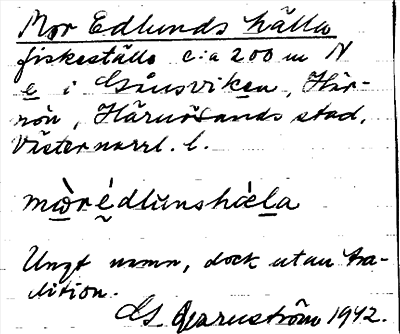 Mor Edlunds hälla
fiskeställe c:a 200 m N
e i Gånsviken, Här-
nön, Härnösands stad,
Västernorrl. l.
mòrédlunshäla
Ungt namn, dock utan tra-
dition.
1942.